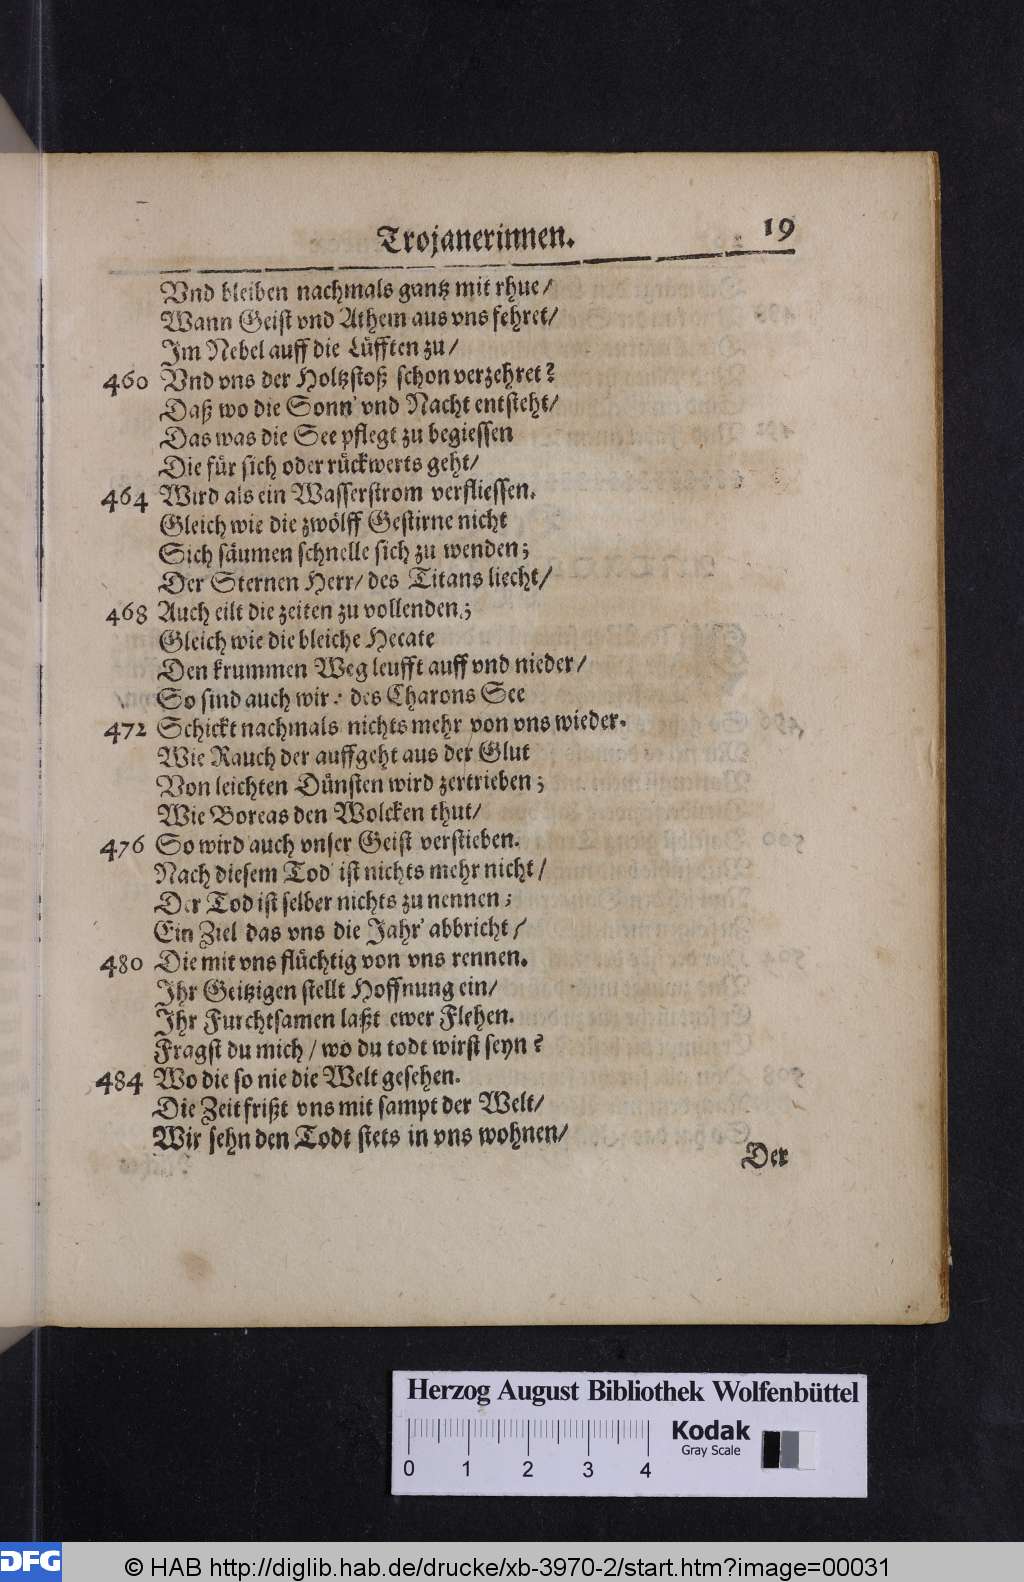 Trojanerinnen. 19
Vnd bleiben nachmals gantz mit rhue/
Wann Geist vnd Athem aus vns fehret/
Im Nebel auff die Lüfften zu/
460 Vnd vns der Holtzstoß schon verzehret?
Daß wo die Sonn' vnd Nacht entsteht/
Das was die See pflegt zu begiessen
Die für sich oder rückwerts geht/
464 Wird als ein Wasserstrom verfliessen.
Gleich wie die zwölff Gestirne nicht
Sich säumen schnelle sich zu wenden;
Der Sternen Herr/ des Titans liecht/
468 Auch eilt die zeiten zu vollenden;
Gleich wie die bleiche Hecate
Den krummen Weg leufft auff vnd nieder/
So sind auch wir: des Charons See
472 Schickt nachmals nichts mehr von vns wieder.
Wie Rauch der auffgeht aus der Glut
Von leichten Dünsten wird zertrieben;
Wie Boreas den Wolcken thut/
476 So wird auch vnser Geist verstieben.
Nach diesem Tod' ist nichts mehr nicht/
Der Tod ist selber nichts zu nennen;
Ein Ziel das vns die Jahr' abbricht/
480 Die mit vns flüchtig von vns rennen.
Ihr Geitzigen stellt Hoffnung ein/
Ihr Furchtsamen laßt ewer Flehen.
Fragst du mich/ wo du todt wirst seyn?
484 Wo die so nie die Welt gesehen.
Die Zeit frißt vns mit sampt der Welt/
Wir sehn den Todt stets in vns wohnen/
Der
Herzog August Bibliothek Wolfenbüttel
Kodak
Gray Scale
0 1 2 3 4
DFG © HAB http://diglib.hab.de/drucke/xb-3970-2/start.htm?image=00031